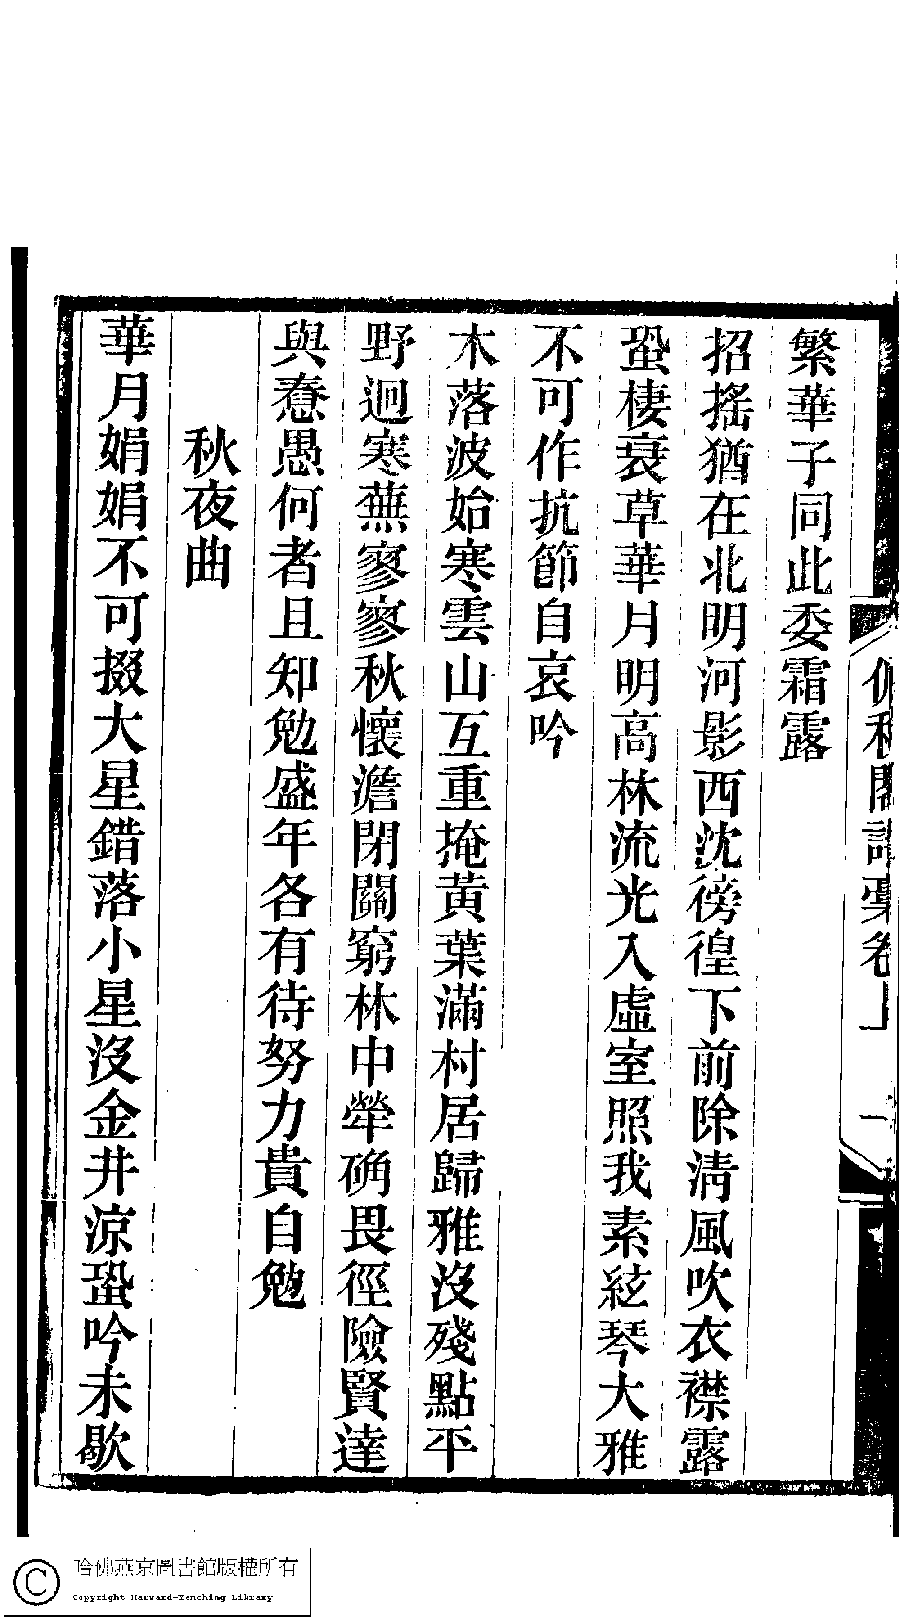 繁華子同此委霜露
招搖猶在北明河影西沈徬徨下前除淸風吹衣襟露
蛩棲衰草華月明高林流光入虛室照我素絃琴大雅
不可作抗節自哀吟
木落波始寒雲山互重掩黃葉滿村居歸雅沒殘點平
野迥寒蕪寥寥秋懷澹閉關窮林中犖确畏徑險賢達
與惷愚何者且知勉盛年各有待努力貴自勉
秋夜曲
華月娟娟不可掇大星錯落小星沒金井涼蛩吟未歇
佩秋閣詩稾卷上
一
哈佛燕京圖書館版權所有
Copyright Harvard-Yenching Library